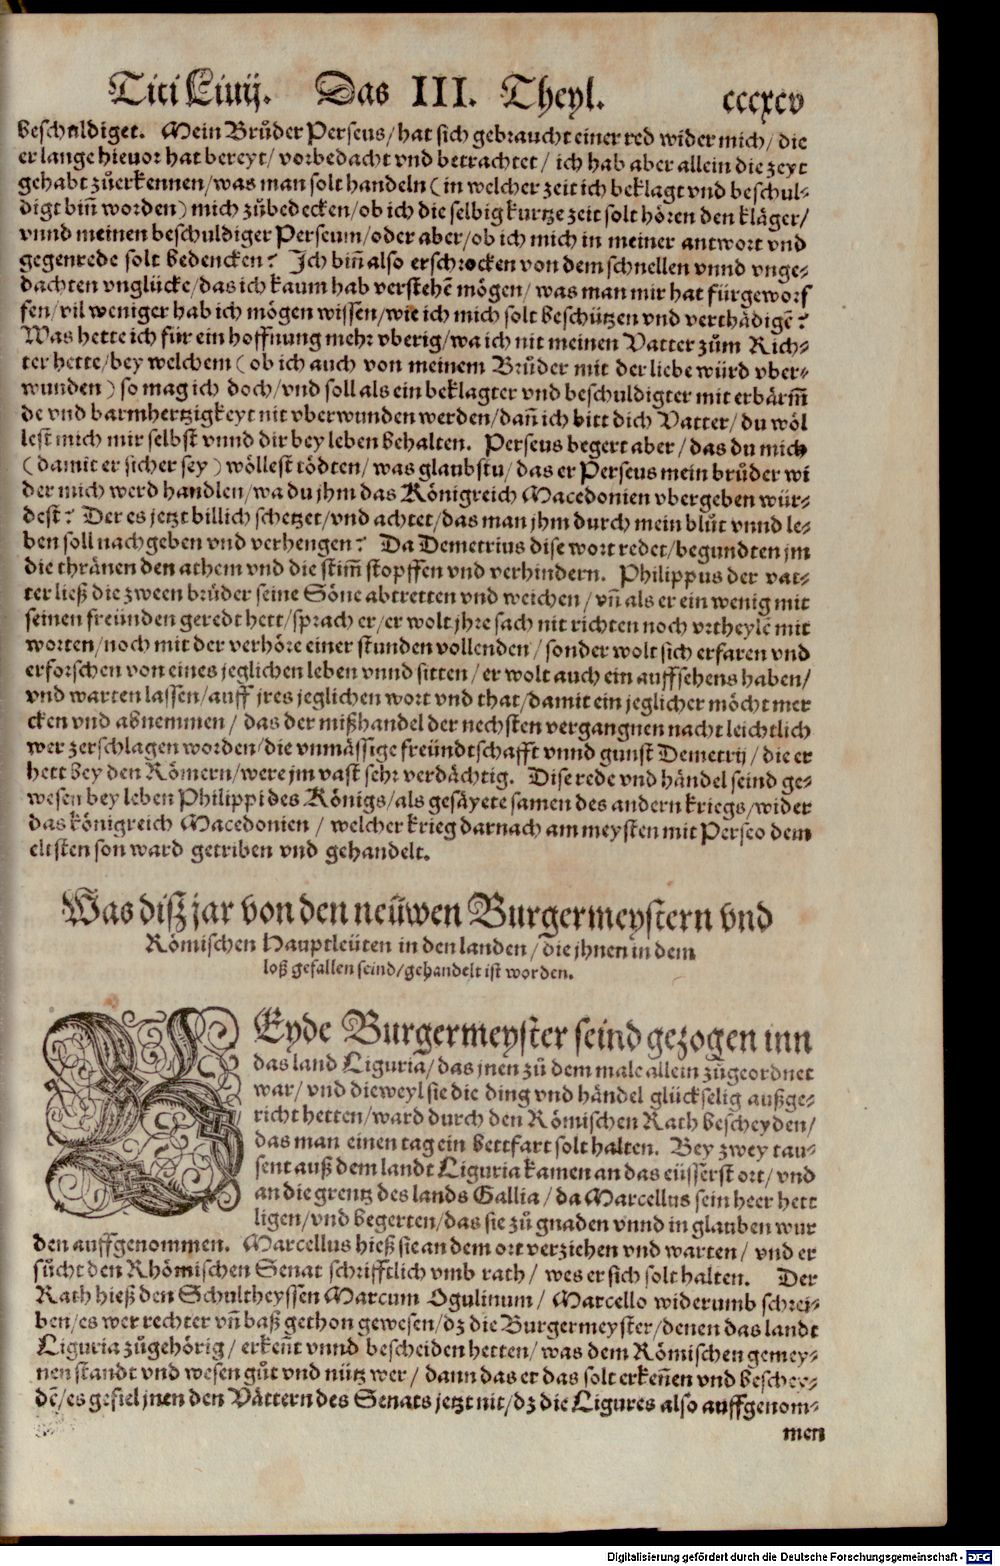 Titi Liuij. Das III. Theyl. cccxcv
beschuldiget. Mein Brůder Perseus/ hat sich gebraucht einer red wider mich/ die
er lange hieuor hat bereyt/ vorbedacht vnd betrachtet/ ich hab aber allein die zeyt
gehabt zůerkennen/ was man solt handeln (in welcher zeit ich beklagt vnd beschul-
digt biñ worden) mich zůbedecken/ ob ich die selbig kurtze zeit solt hören den kläger/
vnnd meinen beschuldiger Perseum/ oder aber/ ob ich mich in meiner antwort vnd
gegenrede solt bedencken? Ich biñ also erschrocken von dem schnellen vnnd vnge-
dachten vnglücke/ das ich kaum hab verstehẽ mögen/ was man mir hat fürgeworf
fen/ vil weniger hab ich mögen wissen/ wie ich mich solt beschützen vnd verthädigẽ?
Was hette ich für ein hoffnung mehr vberig/ wa ich nit meinen Vatter zům Rich-
ter hette/ bey welchem (ob ich auch von meinem Brůder mit der liebe würd vber-
wunden) so mag ich doch/ vnd soll als ein beklagter vnd beschuldigter mit erbärm̃
de vnd barmhertzigkeyt nit vberwunden werden/ dañ ich bitt dich Vatter/ du wöl
lest mich mir selbst vnnd dir bey leben behalten. Perseus begert aber/ das du mich
(damit er sicher sey) wöllest tödten/ was glaubstu/ das er Perseus mein brůder wi
der mich werd handlen/ wa du jhm das Königreich Macedonien vbergeben wür-
dest? Der es jetzt billich schetzet/ vnd achtet/ das man jhm durch mein blůt vnnd le-
ben soll nachgeben vnd verhengen? Da Demetrius dise wort redet/ begundten jm
die thränen den athem vnd die stim̃ stopffen vnd verhindern. Philippus der vat-
ter ließ die zween brüder seine Söne abtretten vnd weichen/ vñ als er ein wenig mit
seinen freünden geredt hett/ sprach er/ er wolt jhre sach nit richten noch vrtheylẽ mit
worten/ noch mit der verhöre einer stunden vollenden/ sonder wolt sich erfaren vnd
erforschen von eines jeglichen leben vnnd sitten/ er wolt auch ein auffsehens haben/
vnd warten lassen/ auff jres jeglichen wort vnd that/ damit ein jeglicher möcht mer
cken vnd abnemmen/ das der mißhandel der nechsten vergangnen nacht leichtlich
wer zerschlagen worden/ die vnmässige freündtschafft vnnd gunst Demetrij/ die er
hett bey den Römern/ were jm vast sehr verdächtig. Dise rede vnd händel seind ge-
wesen bey leben Philippi des Königs/ als gesäyete samen des andern kriegs/ wider
das königreich Macedonien/ welcher krieg darnach am meysten mit Perseo dem
eltsten son ward getriben vnd gehandelt.
Was diß jar von den neüwen Burgermeystern vnd
Römischen Hauptleüten in den landen/ die jhnen in dem
loß gefallen seind/ gehandelt ist worden.
BEyde Burgermeyster seind gezogen inn
das land Liguria/ das jnen zů dem male allein zůgeordnet
war/ vnd dieweyl sie die ding vnd händel glückselig außge-
richt hetten/ ward durch den Römischen Rath bescheyden/
das man einen tag ein bettfart solt halten. Bey zwey tau-
sent auß dem landt Liguria kamen an das eüsserst ort/ vnd
an die grentz des lands Gallia/ da Marcellus sein heer hett
ligen/ vnd begerten/ das sie zů gnaden vnnd in glauben wur
den auffgenommen. Marcellus hieß sie an dem ort verziehen vnd warten/ vnd er
sůcht den Rhömischen Senat schrifftlich vmb rath/ wes er sich solt halten. Der
Rath hieß den Schultheyssen Marcum Ogulinum/ Marcello widerumb schrei-
ben/ es wer rechter vñ baß gethon gewesen/ dz die Burgermeyster/ denen das landt
Liguria zůgehörig/ erkeñt vnnd bescheiden hetten/ was dem Römischen gemey-
nen standt vnd wesen gůt vnd nütz wer/ dann das er das solt erkeñen vnd beschey-
dẽ/ es gefiel jnen den Vättern des Senats jetzt nit/ dz die Ligures also auffgenom-
men
Digitalisierung gefördert durch die Deutsche Forschungsgemeinschaft - DFG